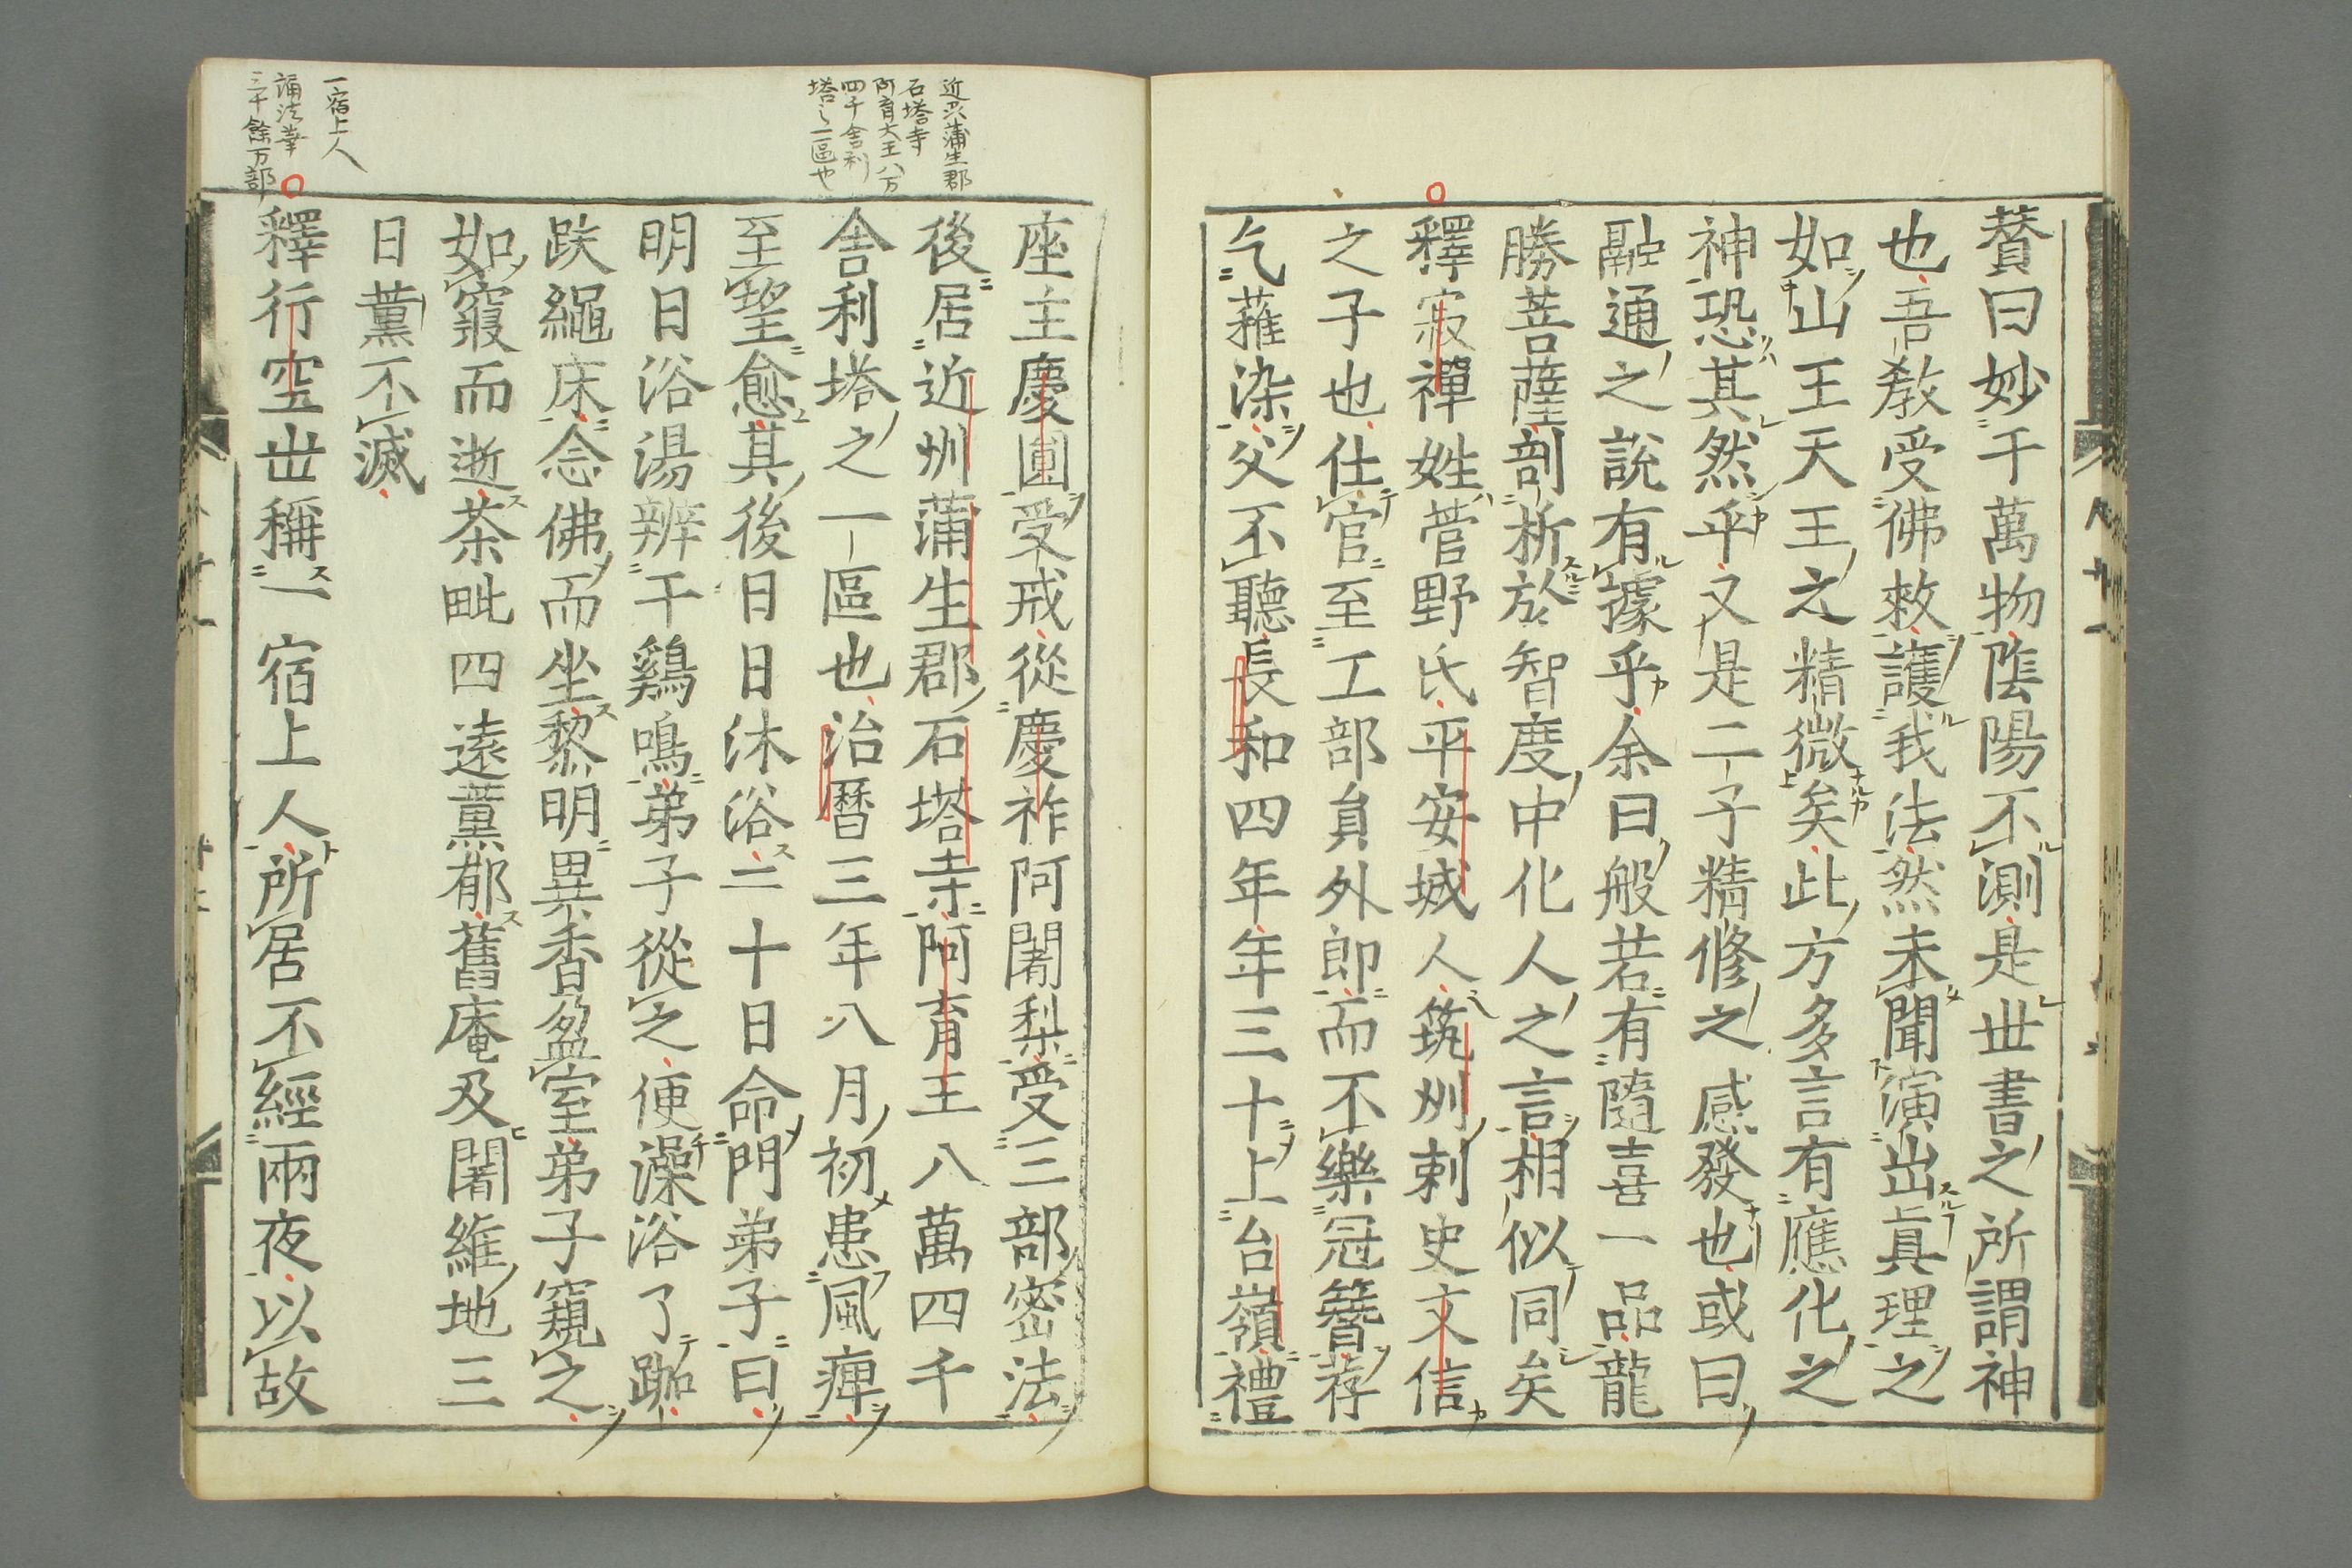 賛曰妙于萬物陰陽不測是世書之所謂神
也吾教受佛敕護我法然未聞演出眞理之
如山王天王之精微矣此方多言有應化之
神恐其然乎又是二子精修之感發也或曰
融通之說有據乎余曰般若有隨喜一品龍
勝菩薩剖析於智度中化人之言相似同矣
釋寂禪姓菅野氏平安城人筑州刺史文信
之子也仕官至工部員外郎而不樂冠簪荐
乞薙染父不聽長和四年年三十上台嶺禮
近州蒲生郡
石塔寺
阿育大王八万
四千舍利
塔之一區也
座主慶圓受戒從慶祚阿闍梨受三部密法
後居近州蒲生郡石塔寺阿育王八萬四千
舍利塔之一區也治曆三年八月初患風痺
至望愈其後日日沐浴二十日命門弟子曰
明日浴湯辨于鷄鳴弟子從之便澡浴了跏
趺繩床念佛而坐黎明異香盈室弟子窺之
如寢而逝荼毗四遠薰郁舊庵及闍維地三
日薰不滅
一宿上人
誦法華
三千餘万部
釋行空世稱一宿上人所居不經兩夜以故